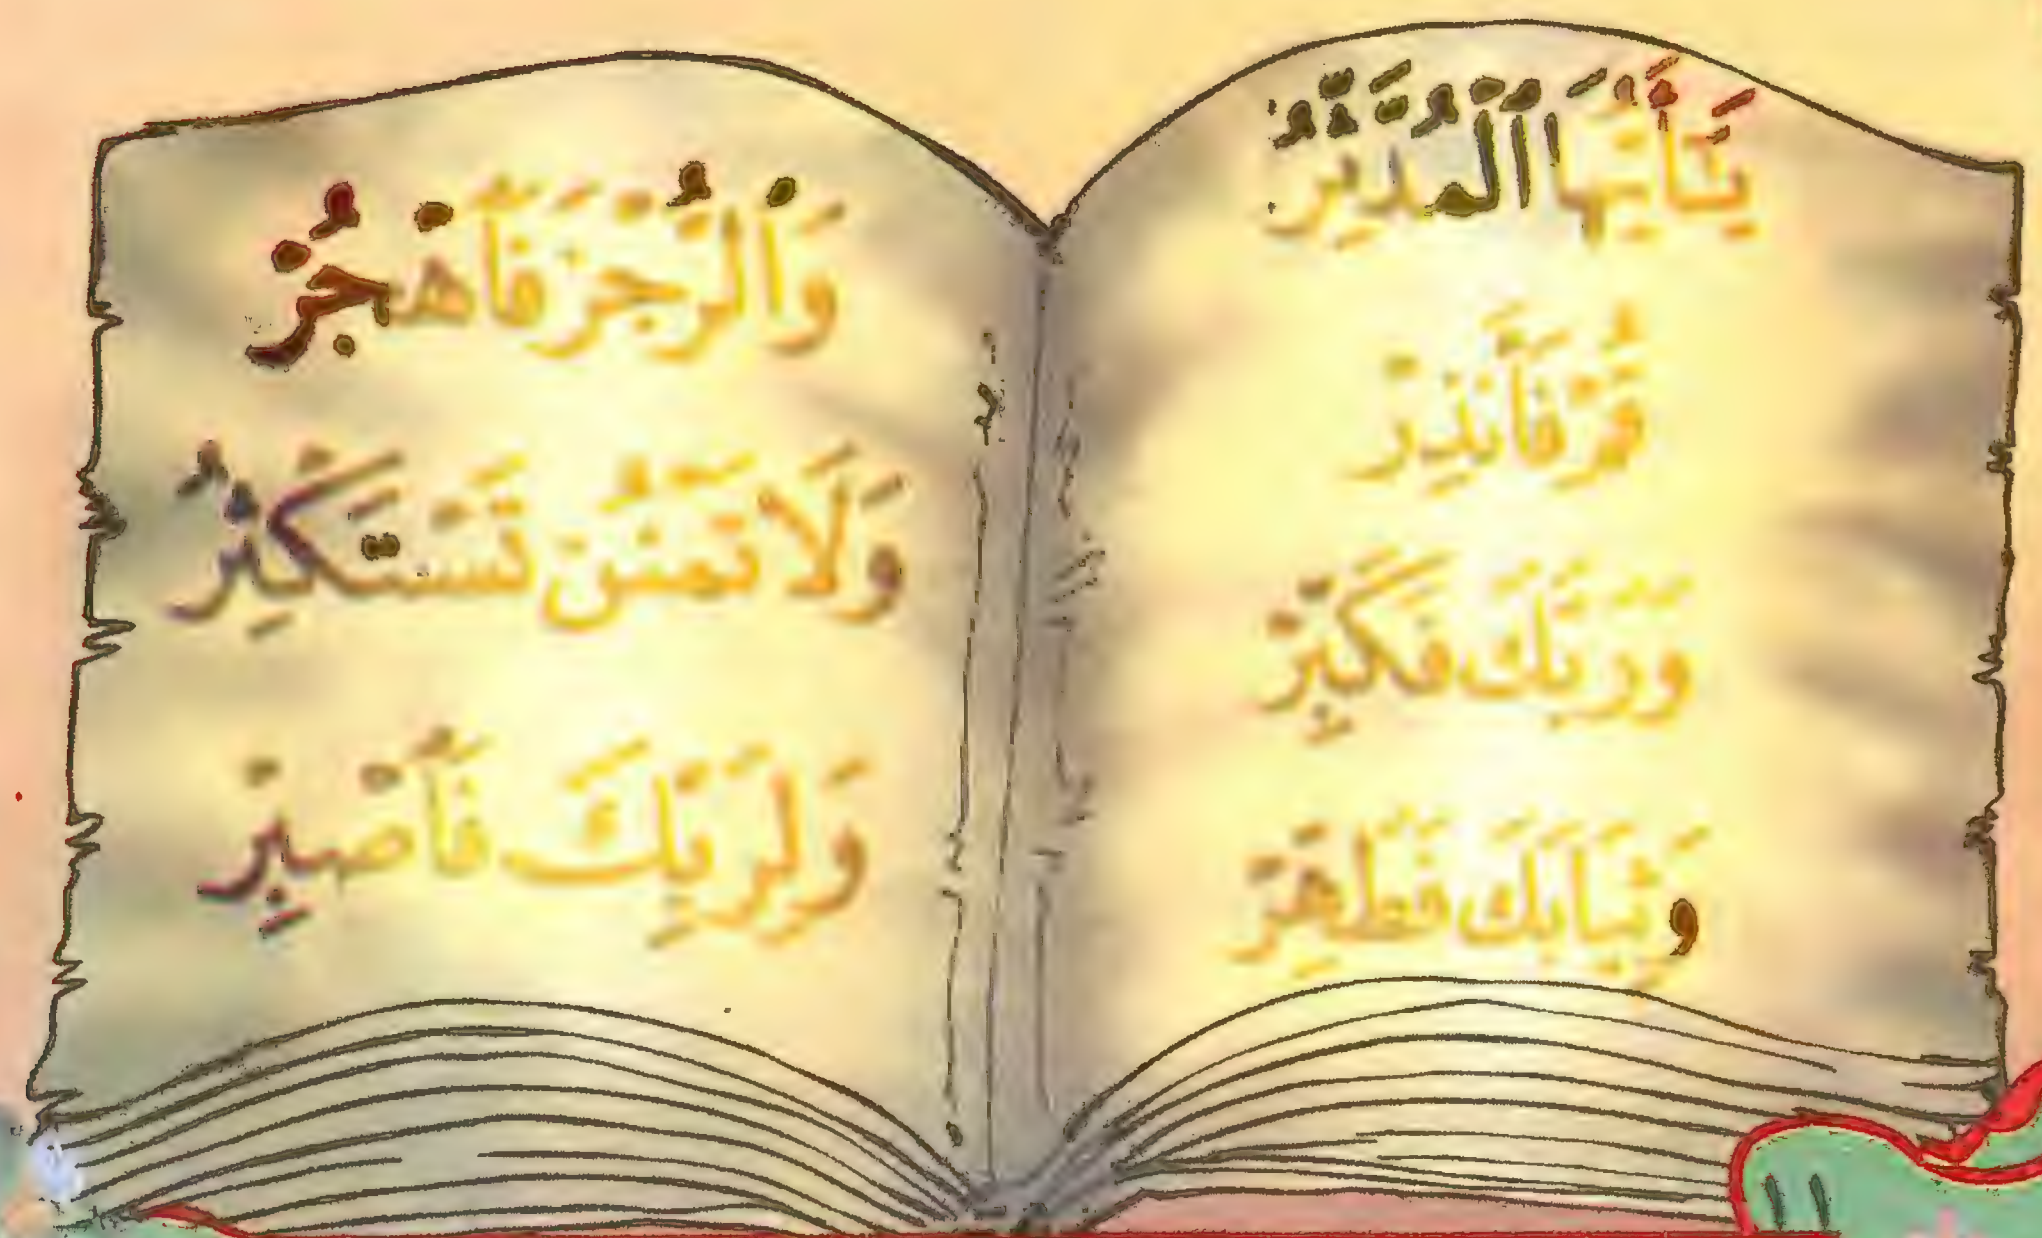 يَٰٓأَيُّهَا ٱلْمُدَّثِّرُ
قُمْ فَأَنذِرْ
وَرَبَّكَ فَكَبِّرْ
وَثِيَابَكَ فَطَهِّرْ
وَٱلرُّجْزَ فَٱهْجُرْ
وَلَا تَمْنُن تَسْتَكْثِرُ
وَلِرَبِّكَ فَٱصْبِرْ